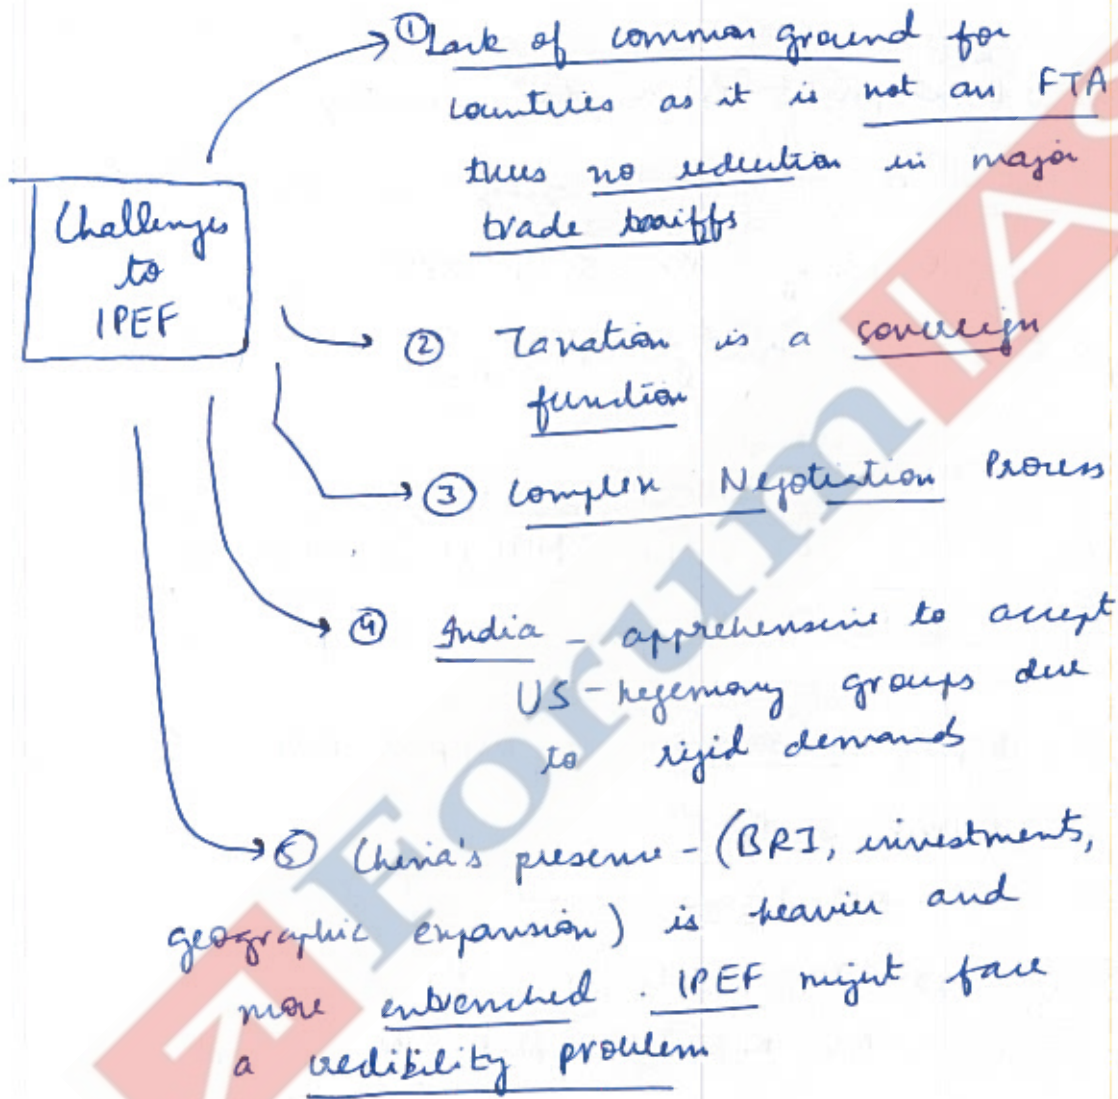 Challenges
to
IPEF
① Lack of common ground for
countries as it is not an FTA
thus no reduction in major
trade tariffs
② Taxation is a sovereign
function
③ Complex Negotiation Process
④ India - apprehensive to accept
US-hegemony groups due
to rigid demands
⑤ China's presence - (BRI, investments,
geographic expansion) is heavier and
more entrenched. IPEF might face
a credibility problem
Forum IAS